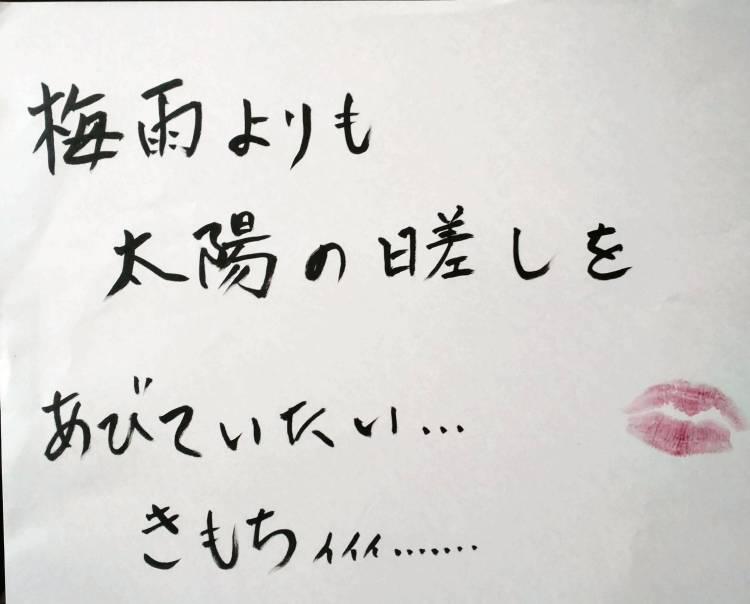 梅雨よりも
太陽の日差しを
あびていたい…
きもちィィィ.......